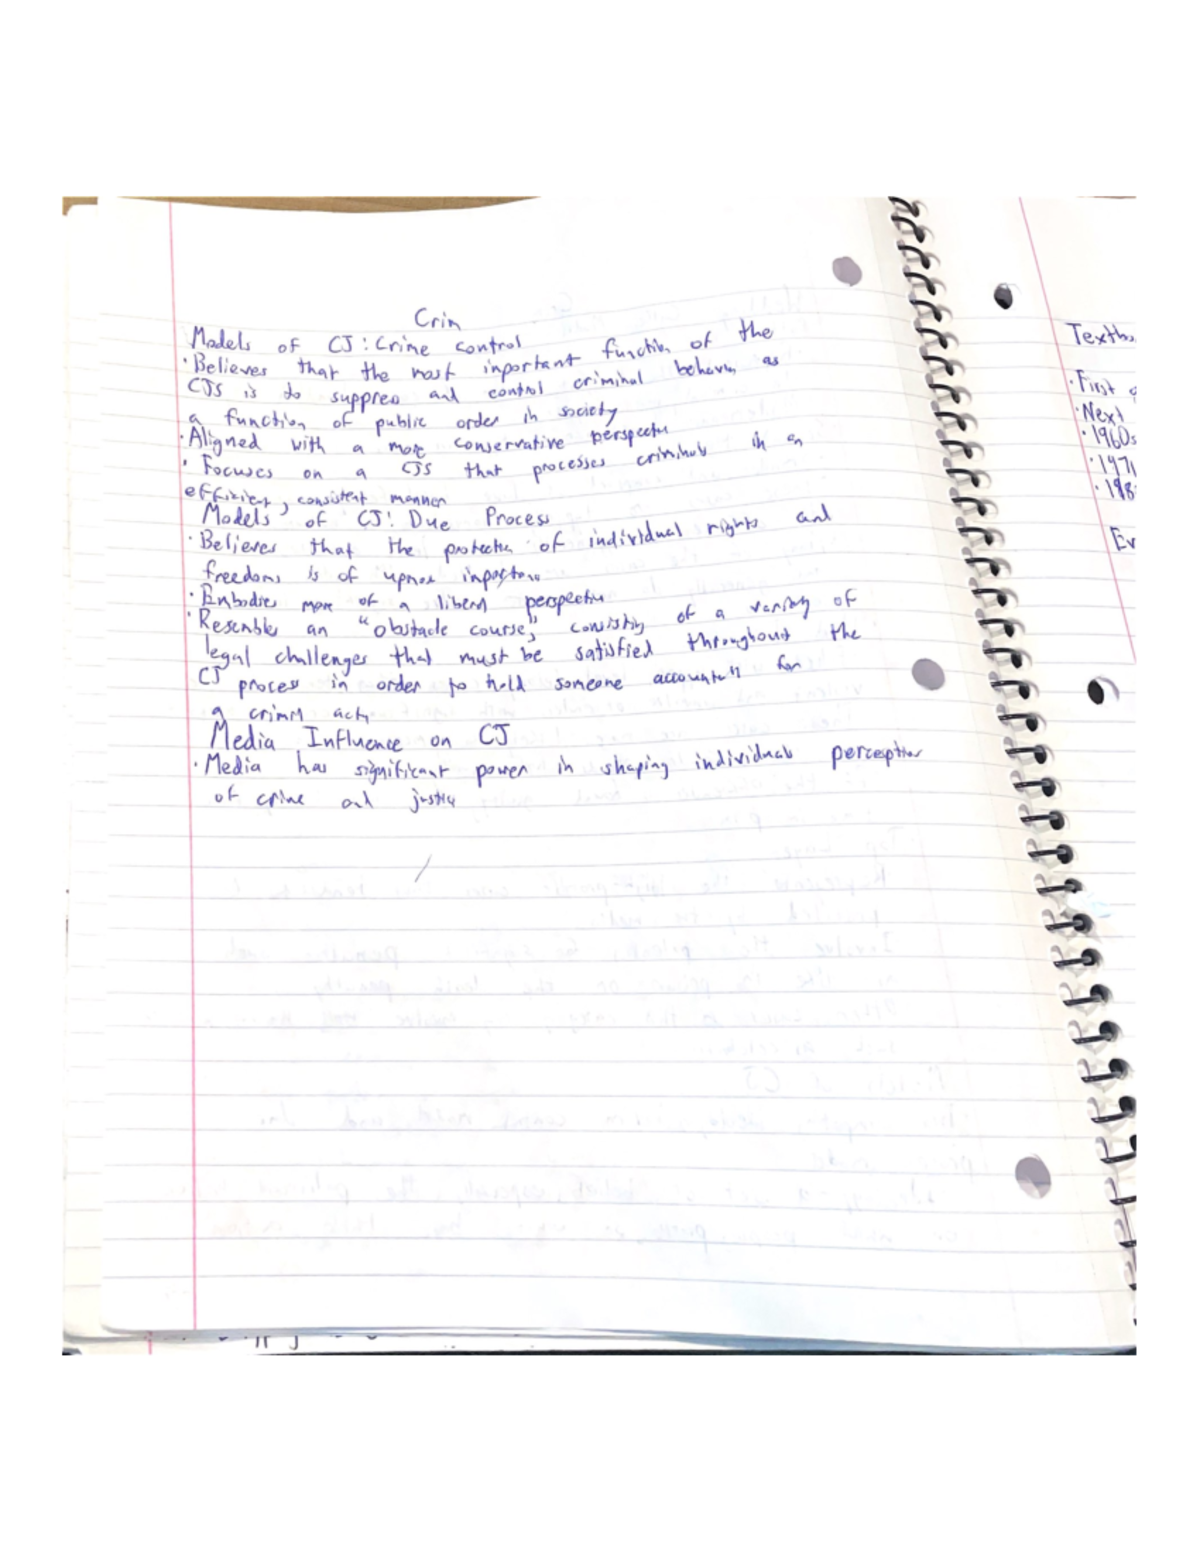 Crim
Models of CJ: Crime control
· Believes that the most important function of the
CJS is to suppress and control criminal behavior as
a function of public order in society
· Aligned with a more conservative perspective
· Focuses on a CJS that processes criminals in an
efficient, consistent manner
Models of CJ: Due Process
· Believes that the protection of individual rights and
freedoms is of upmost importance
· Embodies more of a liberal perspective
· Resembles an "obstacle course," consisting of a variety of
legal challenges that must be satisfied throughout the
CJ process in order to hold someone accountable for
a criminal act
Media Influence on CJ
· Media has significant power in shaping individuals perception
of crime and justice
Textbo
· First
· Next
· 1960s
· 1971
· 198
Ev